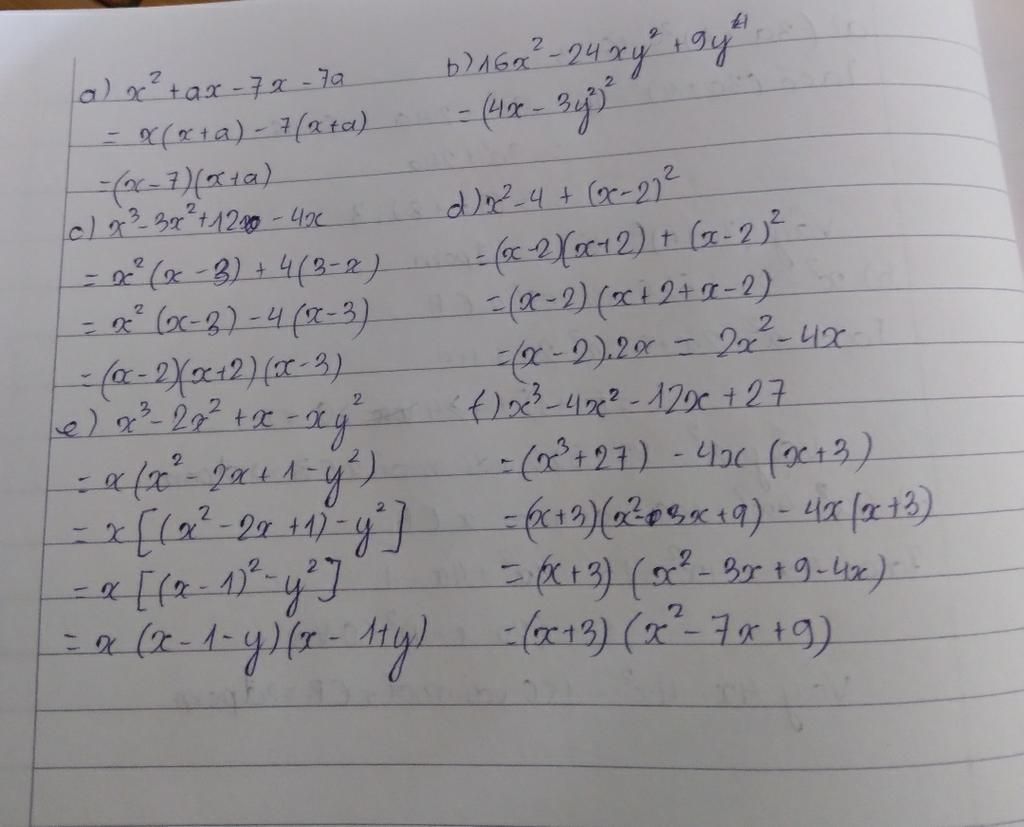 a) x² + ax - 7x - 7a
= x(x+a) - 7(x+a)
= (x-7)(x+a)
b) 16x² - 24xy² + 9y⁴
= (4x - 3y²)²
c) x³ - 3x² + 12 - 4x
= x²(x-3) + 4(3-x)
= x²(x-3) - 4(x-3)
= (x-2)(x+2)(x-3)
d) x² - 4 + (x-2)²
= (x-2)(x+2) + (x-2)²
= (x-2)(x+2+x-2)
= (x-2).2x = 2x² - 4x
e) x³ - 2x² + x - xy²
= x(x² - 2x + 1 - y²)
= x[(x² - 2x + 1) - y²]
= x[(x-1)² - y²]
= x(x-1-y)(x-1+y)
f) x³ - 4x² - 12x + 27
= (x³ + 27) - 4x(x+3)
= (x+3)(x² - 3x + 9) - 4x(x+3)
= (x+3)(x² - 3x + 9 - 4x)
= (x+3)(x² - 7x + 9)